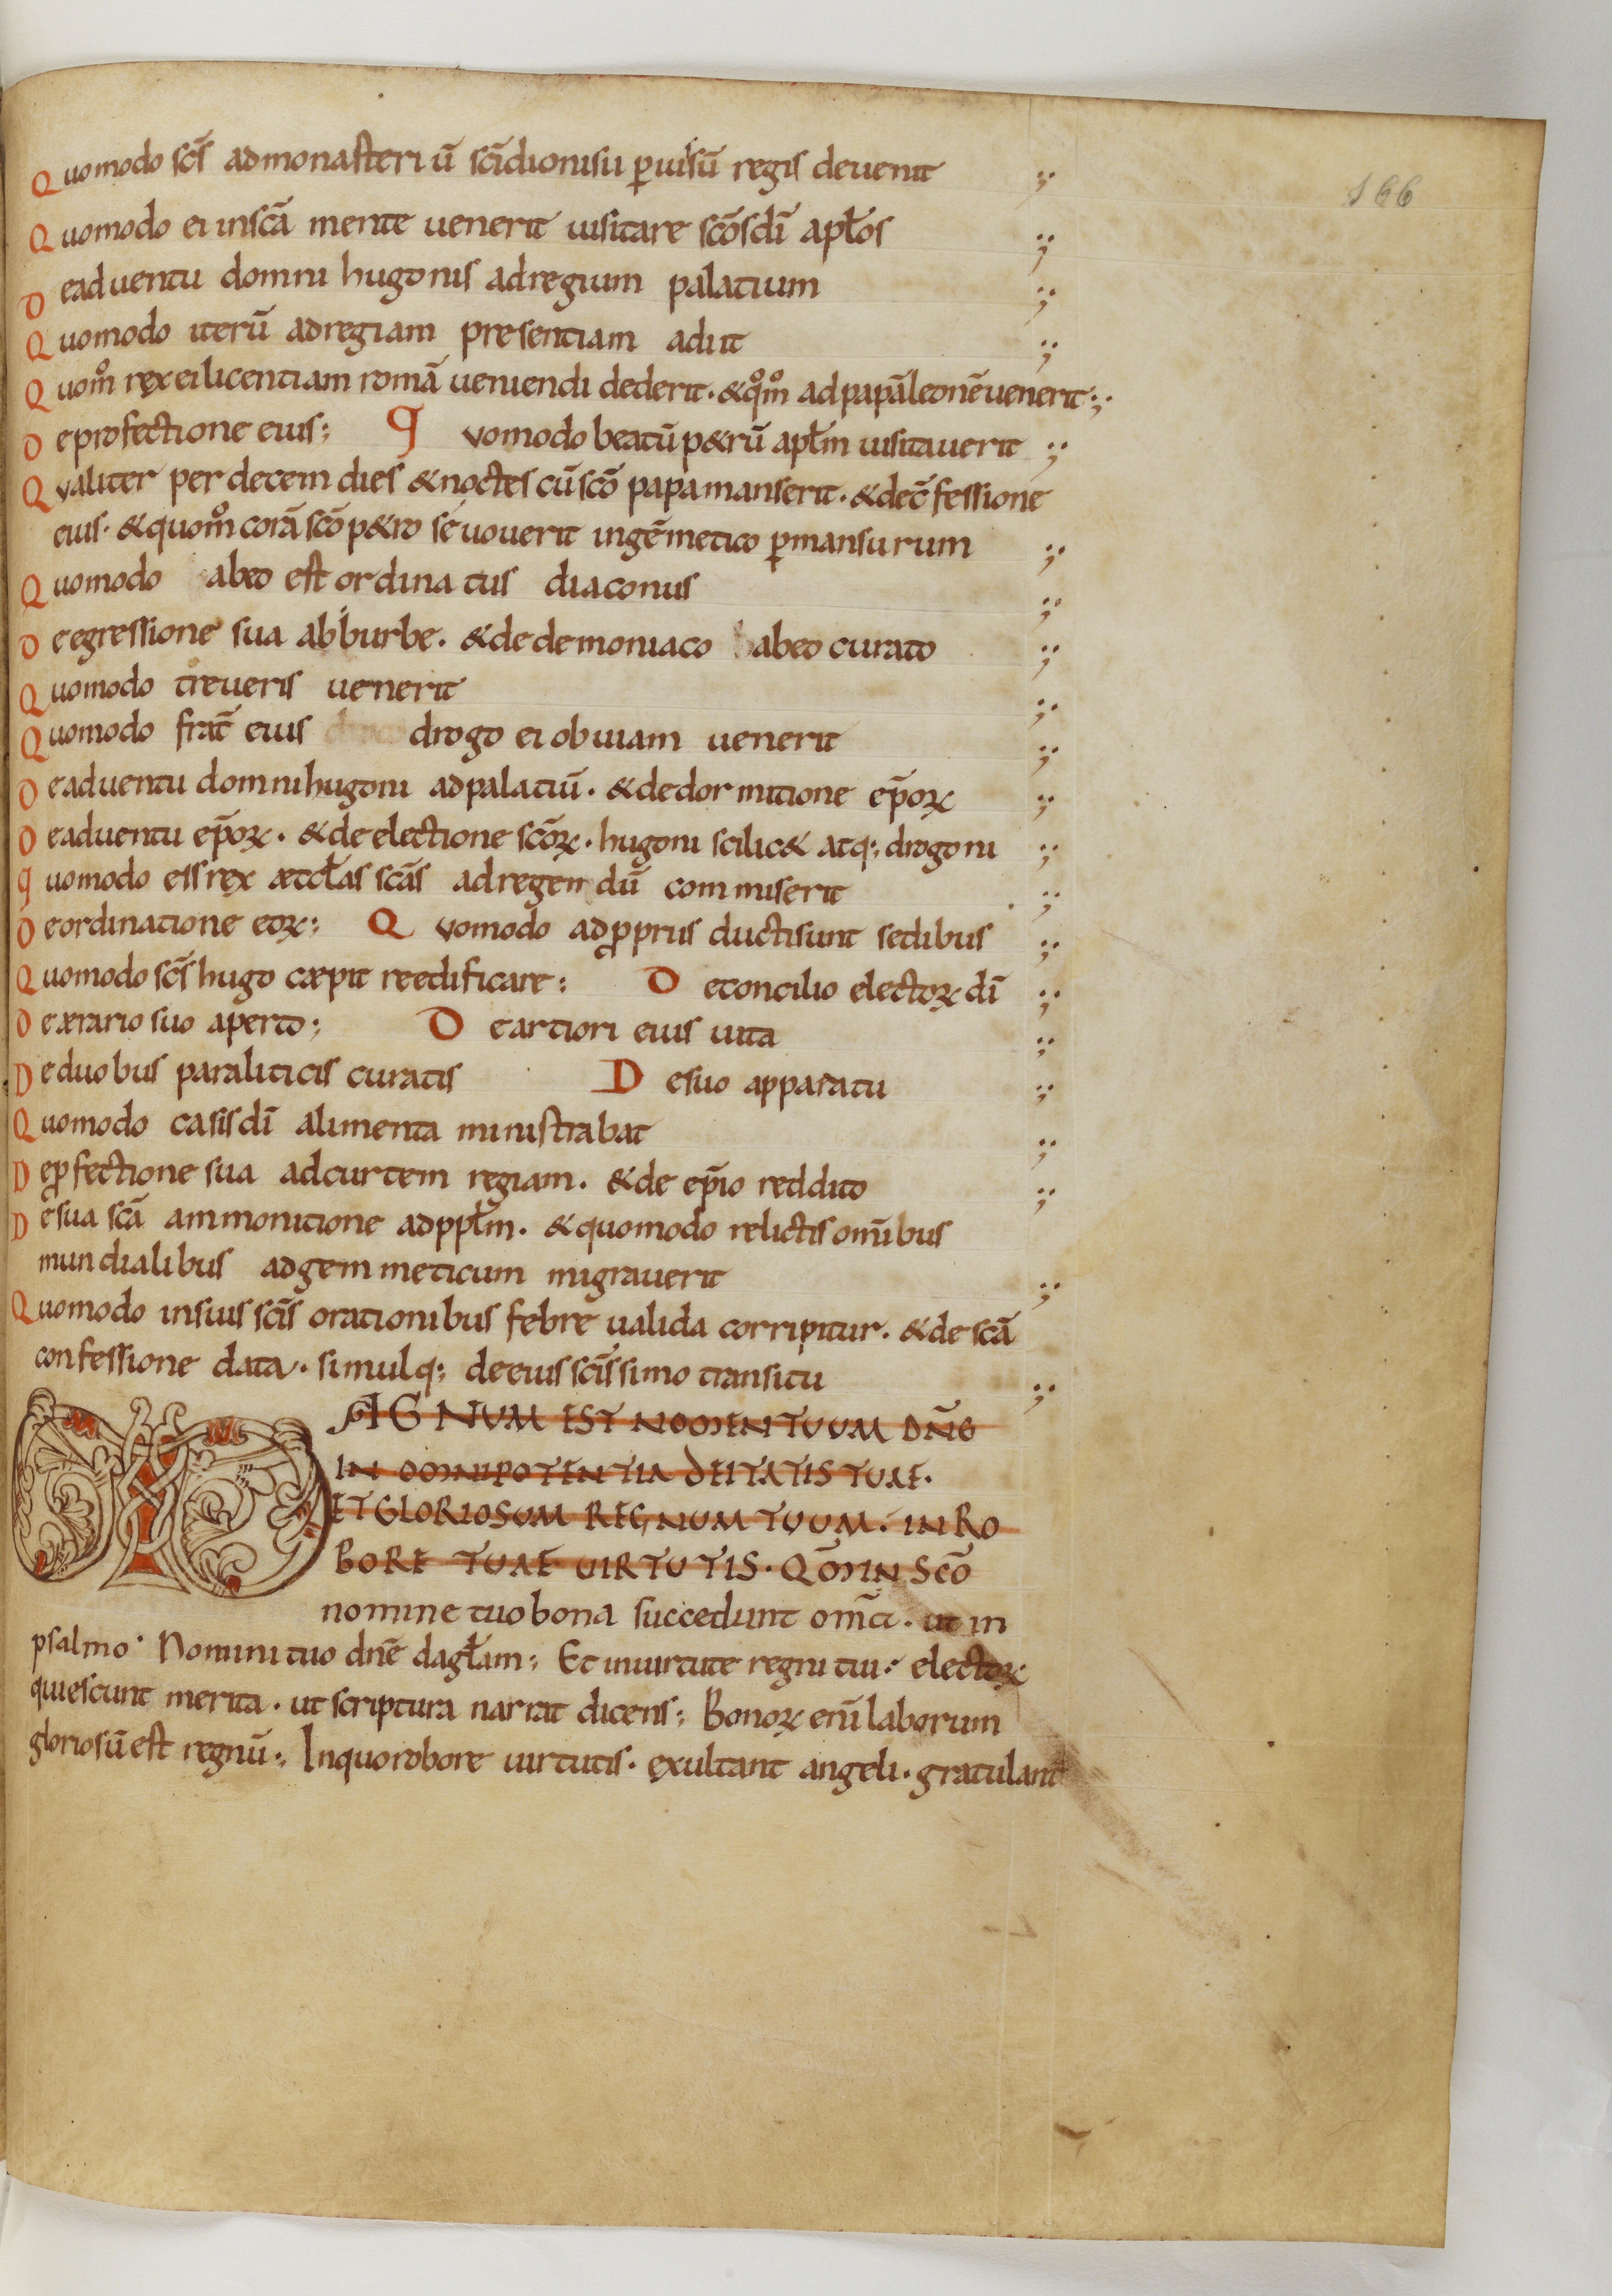 166
Quomodo scs̄ ad monasteriū sc̄i dionisii ꝑ uisū regis deuenit ⁖
Quomodo ei in scā mente uenerit uisitare scōs dī apłos ⁖
De aduentu domni hugonis ad regium palatium ⁖
Quomodo iterū ad regiam presentiam adiit ⁖
Quom̊ rex ei licentiam romā ueniendi dederit · & q̊m̊ ad papā leonē uenerit ⁖
De profectione eius ; Quomodo beatū p&rū apłm uisitauerit ⁖
Qualiter per decem dies & noctes cū scō papa manserit · & de c̄fessione
eius · & quom̊ corā scō p&ro se uouerit in gēmetico ꝑmansurum ⁖
Quomodo ab eo est ordinatus diaconus ⁖
De egressione sua ab iburbe · & de demoniaco ab eo curato ⁖
Quomodo treueris uenerit ⁖
Quomodo frat̄ eius drogo ei obuiam uenerit ⁖
De aduentu domni hugoni ad palatiū · & de dormitione ep̄oꝝ ⁖
De aduentu ep̄oꝝ · & de electione scōꝝ · hugoni scilic& atq; drogoni ⁖
Quomodo eis rex æccłas scās ad regendū commiserit ⁖
De ordinatione eoꝝ ; Quomodo ad ꝓpriis ducti sunt sedibus ⁖
Quomodo scs̄ hugo cæpit reedificare ; De concilio electoꝝ dī ⁖
De ærario suo aperto ; De artiori eius uita ⁖
De duobus paraliticis curatis De suo apparatu ⁖
Quomodo casis dī alimenta ministrabat ⁖
De ꝓfectione sua ad curtem regiam · & de ep̄io reddito ⁖
De sua scā ammonitione ad ppłm · & quomodo relictis om̄ibus
mundialibus ad gemmeticum migrauerit ⁖
Quomodo in suis scīs orationibus febre ualida corripitur · & de scā
confessione data · simulq; de eius scīssimo transitu ⁖
MAGNUM EST NOMEN TUUM DN̄E
IN OMNIPOTENTIA DEITATIS TUAE ·
ET GLORIOSUM REGNUM TUUM · IN RO
BORE TUAE UIRTUTIS · QM̄ IN SCŌ
nomine tuo bona succedunt om̄ia · ut in
psalmo · Nomini tuo dnē da głam ; Et in uirtute regni tui · electoꝝ
quiescunt merita · ut scriptura narrat dicens ; Bonoꝝ enī laborum
gloriosū est regnū ·; In quo robore uirtutis · exultant angeli · gratulant̄